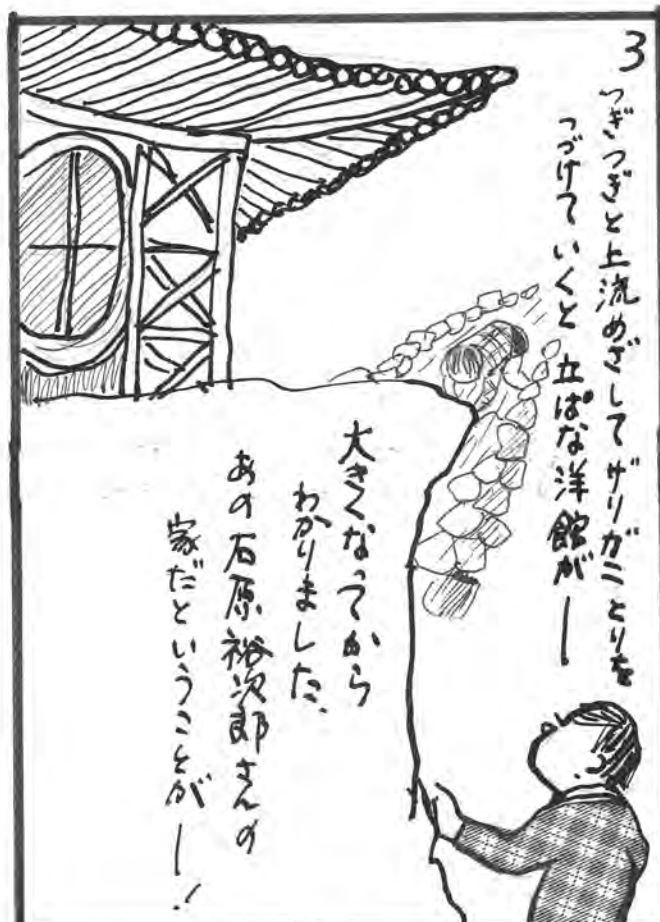 3
つぎつぎと上流めざしてザリガニとりを
つづけていくと 立ぱな洋館がー
大きくなってから
わかりました、
あの石原裕次郎さんの
家だということがー!